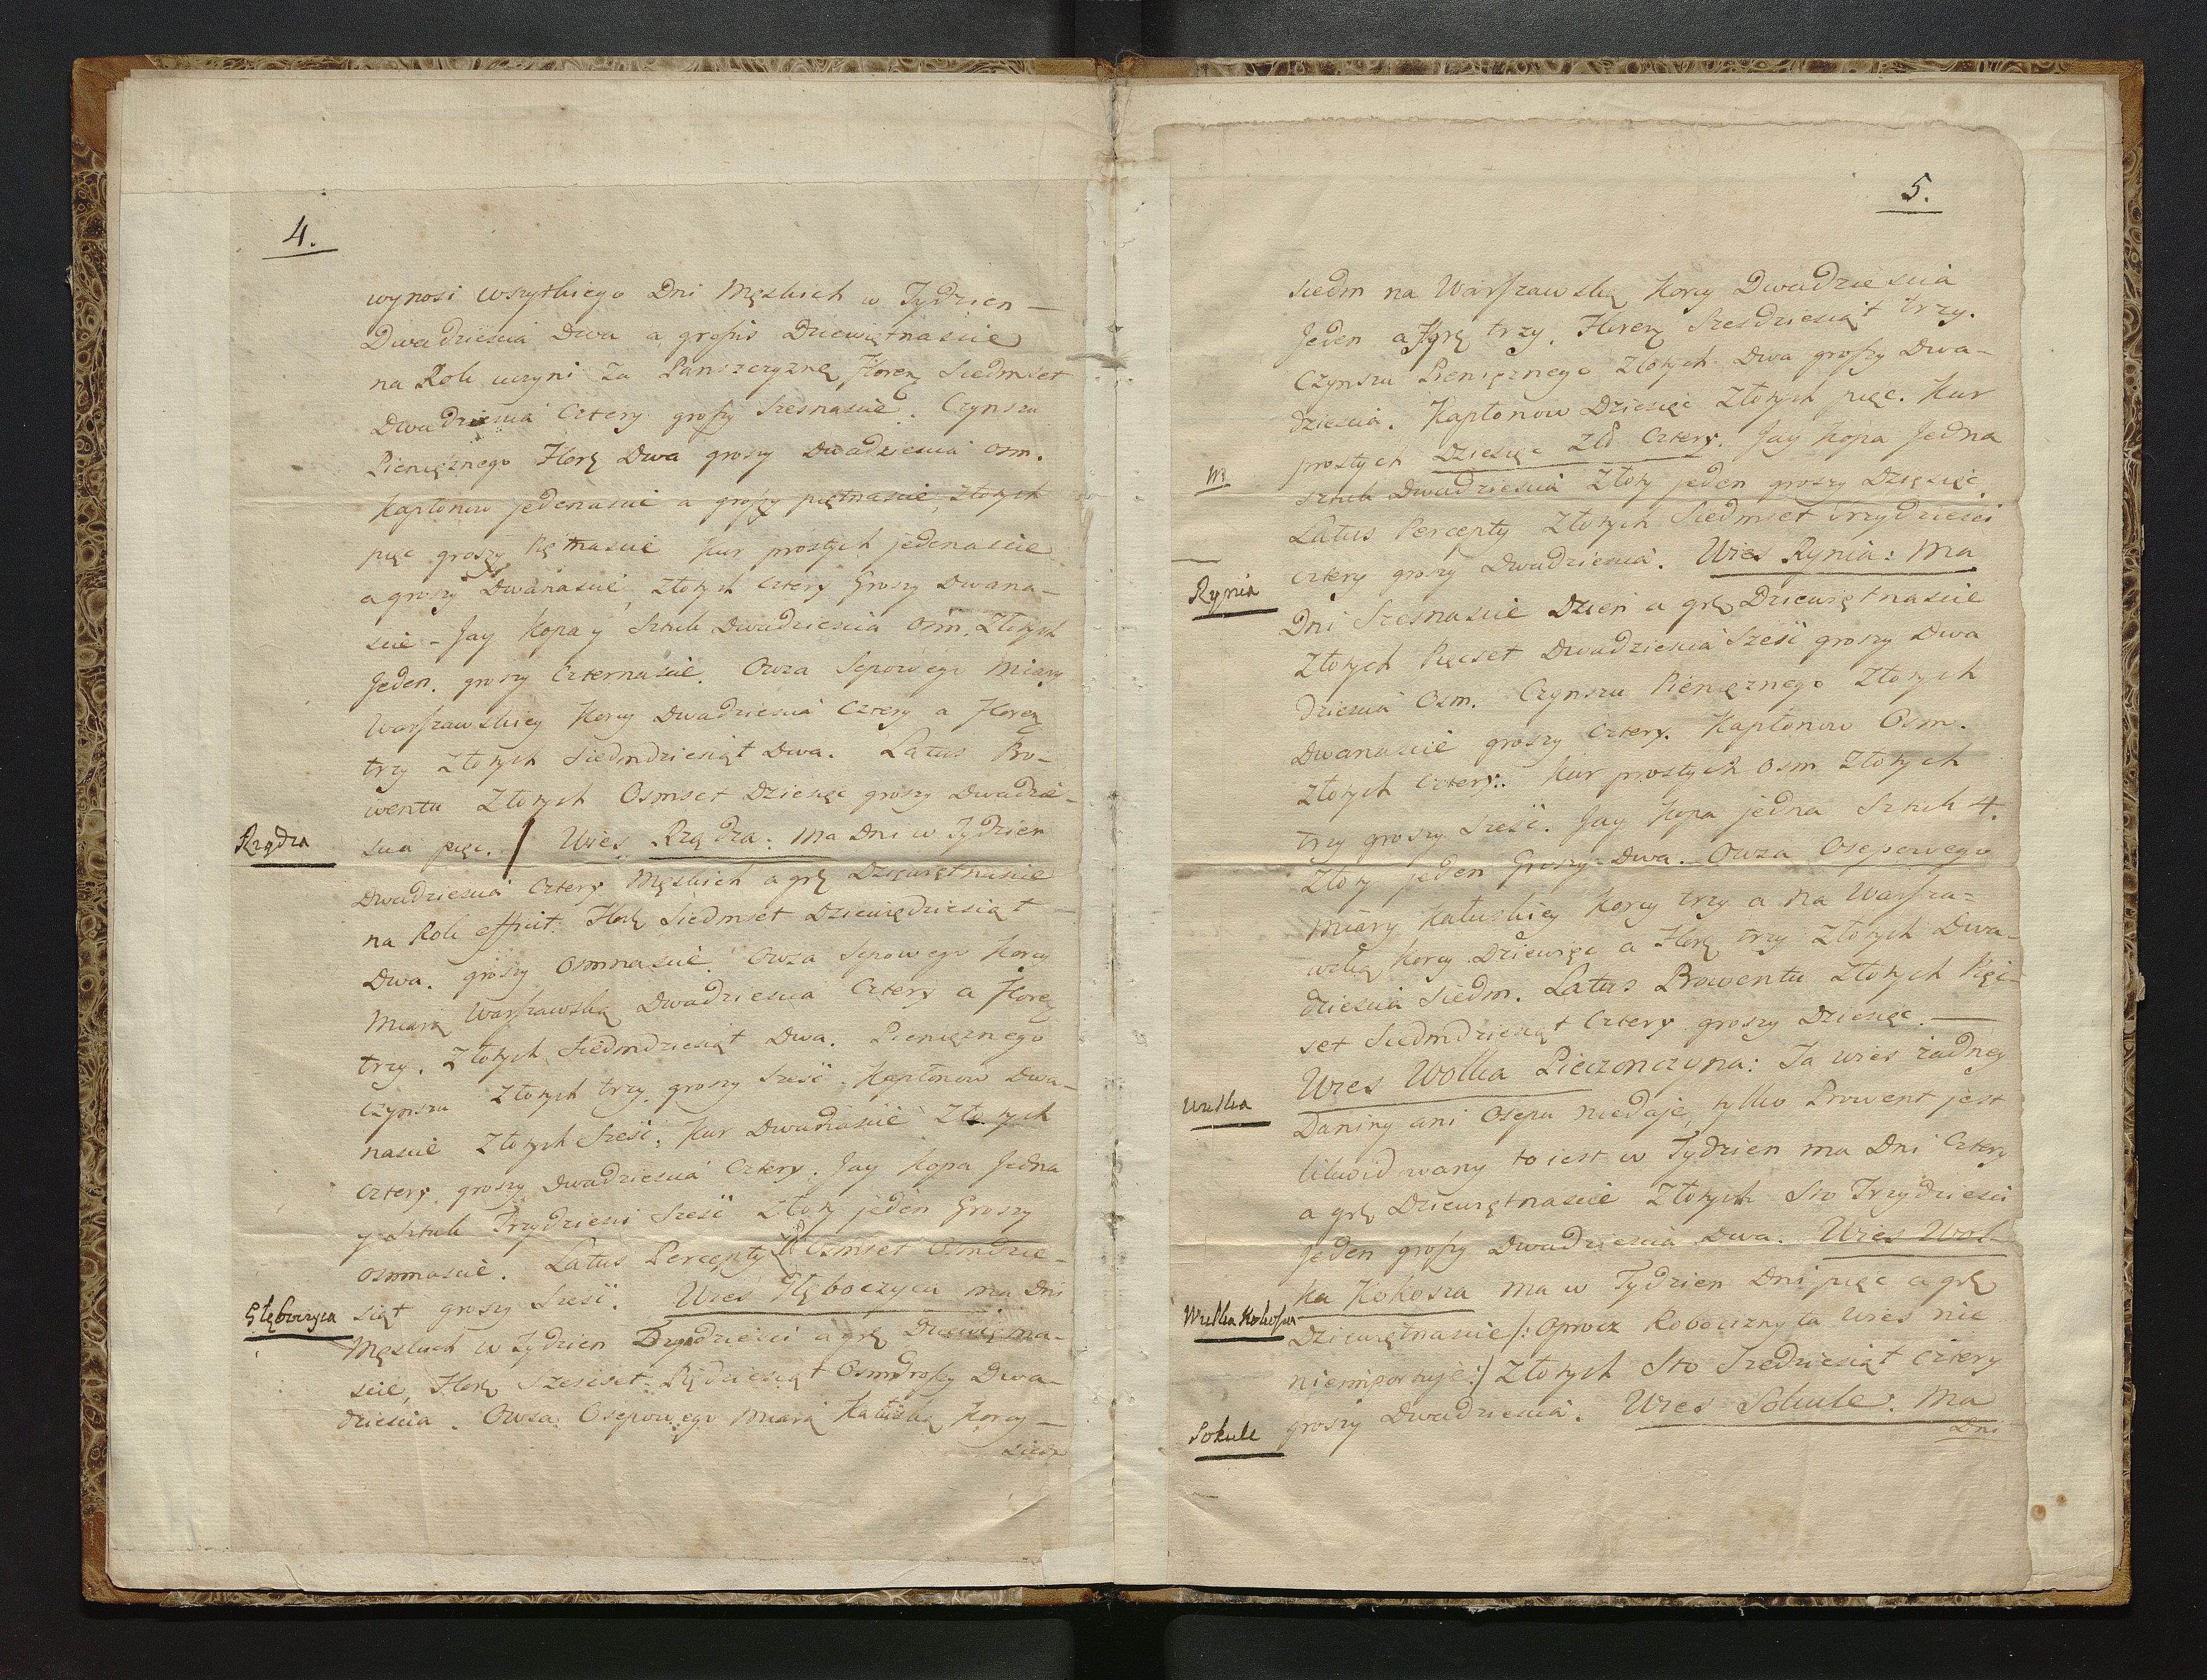 4.
wynosi wszytkiego Dni Męskich w Tydzien —
Dwadziescia Dwa a groszis Dziewiętnascie
na Rok uczyni Za Panszczyznę Floren Siedmset
Dwadziescia Cztery groszy Szesnascie. Czynszu
Pieniężnego Flor: Dwa groszy Dwadziescia osm.
Kapłonow jedenascie a groszy piętnascie, złotych
pięc groszy Piętnascie Kur prostych jedenascie
a groszy Dwanascie, złotych cztery Groszy Dwana-
scie – Jay Kopa y Sztuk Dwadziescia Osm. Złotych
Jeden. groszy Czternascie. Owsa Sepowego Miary
Warszawskiey Korcy Dwadziescia Cztery a Floren
trzy Złotych Siedmdziesiąt Dwa. Latus Pro-
wentu Złotych Osmset Dziesięc groszy Dwadzie-
Rządza
scia pięc. / Wies Rządza: ma Dni w Tydzien
Dwadziescia Cztery Męskich a gr: Dziewiętnascie
na Rok efficit Flor: Siedmset Dziewiędziesiąt
Dwa. groszy Osmnascie. Owsa Sepowego Korcy
Miarą Warszawską Dwadziescia Cztery a Floren
trzy. Złotych Siedmdziesiąt Dwa. Pieniężnego
Czynszu Złotych trzy groszy Szesc. Kapłonow Dwa-
nascie Złotych Szesc. Kur Dwanascie Złotych
Cztery groszy Dwadziescia Cztery. Jay Kopa Jedna
y Sztuk Trzydziesci Szesc Złoty jeden Groszy
osmnascie. Latus Percepty Zł Osmset Osmdzie-
siąt groszy Szesc. Wies Głęboczyca ma Dni
Głęboczyca
Męskich w Tydzien Trzydziesci a gr: Dziewiętna-
scie, Flor: Szescset Pędziesiąt Osm groszy Dwa-
dziescia. Owsa Osepowego Miarą Kałuską Korcy —
siedm
5.
siedm na Warszawską Korcy Dwadziescia
Jeden a Flor: trzy. Floren Szesdziesiąt trzy.
Czynszu Pieniężnego Złotych Dwa groszy Dwa-
dziescia. Kapłonow Dziesięc Złotych pięc. Kur
prostych Dziesięc Zł Cztery. Jay Kopa Jedna
sztuk Dwadziescia Złoty jeden groszy Dziesięc
Latus Percepty Złotych Siedmset trzydziesci
cztery groszy Dwadziescia. Wies Rynia: ma
Rynia
Dni Szesnascie Dzien a gr: Dziewiętnascie
Złotych Pięcset Dwadziescia Szesc groszy Dwa
dziescia Osm. Czynszu Pieniężnego Złotych
Dwanascie groszy Cztery. Kapłonow Osm.
Złotych Cztery. Kur prostych Osm Złotych
trzy groszy Szesc. Jay Kopa jedna Sztuk 4.
Złoty jeden Groszy Dwa. Owsa Osepowego
Miary Kałuskiey Korcy trzy a na Warsza-
wską Korcy Dziewięc a Flor: trzy Złotych Dwa-
dziescia Siedm. Latus Prowentu Złotych Pięc-
set Siedmdziesiąt Cztery groszy Dziesięc. —
Wies Wolka Pieczonczyna: Ta wies żadney
Wulka
Daniny ani Osepu niedaje, tylko Prowent jest
likwidowany to iest w Tydzien ma Dni Cztery
a gr: Dziewiętnascie Złotych Sto Trzydziesci
Jeden groszy Dwadziescia Dwa. Wies Wol-
ka Kokosza ma w Tydzien Dni pięc a gr:
Wulka Kokosza
Dziewiętnascie /: Oprocz Robocizny ta wies nic
nieimportuje :/ Złotych Sto Szedziesiąt cztery
groszy Dwadziescia. Wies Sokule: Ma
Sokule
Dni